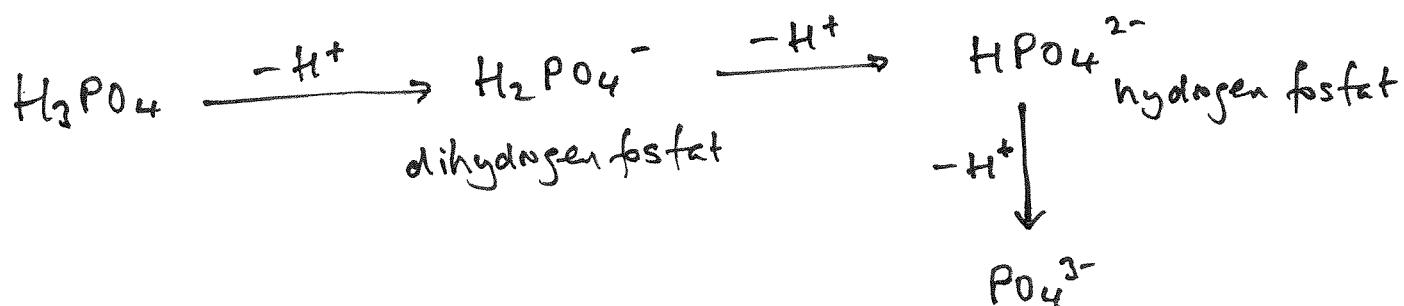 H₃PO₄ -H⁺ H₂PO₄⁻ -H⁺ HPO₄²⁻
dihydrogenfosfat hydrogenfosfat
-H⁺
PO₄³⁻